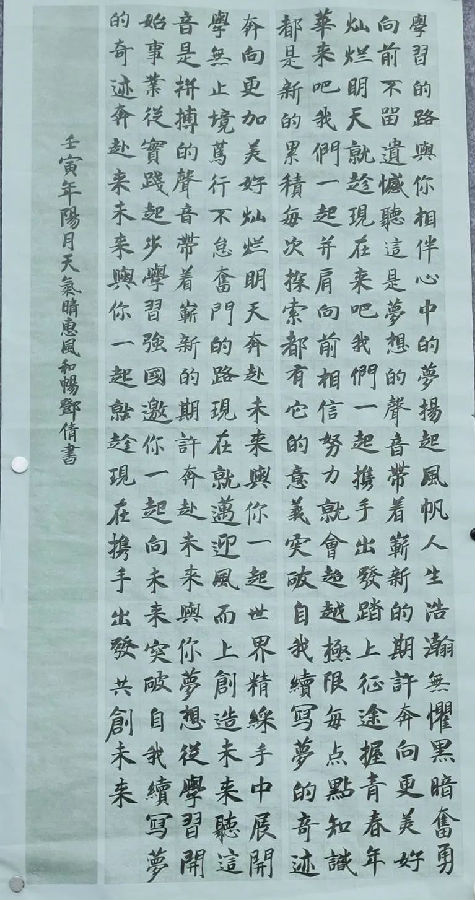 學習的路與你相伴心中的夢揚起風帆人生浩瀚無懼黑暗奮勇
向前不留遺憾聽這是夢想的聲音帶着嶄新的期許奔向更美好
灿烂明天就趁現在来吧我們一起携手出發踏上征途握青春年
華来吧我們一起并肩向前相信努力就會超越極限每点點知識
都是新的累積每次探索都有它的意義突破自我續寫夢的奇迹
奔向更加美好灿烂明天奔赴未来與你一起世界精綵手中展開
學無止境篤行不怠奮門的路現在就邁迎風而上創造未来聽這
音是拼搏的聲音帶着嶄新的期許奔赴未来與你夢想從學習開
始事業從實踐起步學習強國邀你一起向未来突破自我續寫夢
的奇迹奔赴来未来與你一起就趁現在携手出發共創未来
壬寅年陽月天氣晴惠風和暢鄧倩書